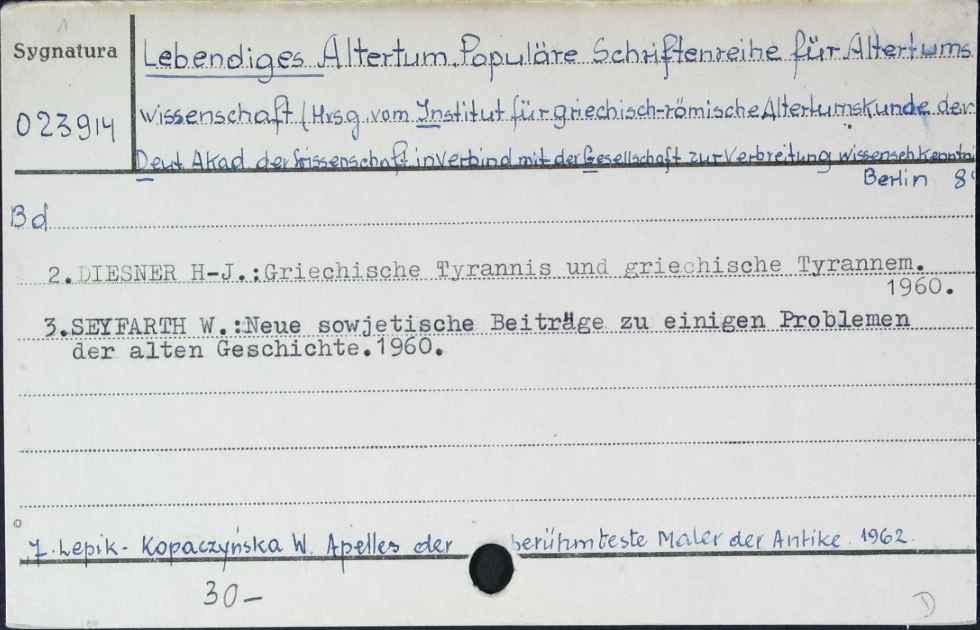 Sygnatura
Lebendiges Altertum. Populäre Schriftenreihe für Altertums
023914
wissenschaft / Hrsg. vom Institut für griechisch-römische Altertumskunde der
Deut Akad der Wissenschaft in Verbind mit der Gesellschaft zur Verbreitung wissensch Kenntni
Berlin 8°
Bd
2. DIESNER H-J.:Griechische Tyrannis und griechische Tyrannem.
1960.
3. SEYFARTH W.:Neue sowjetische Beiträge zu einigen Problemen
der alten Geschichte.1960.
7. Lepik-Kopaczyńska W. Apelles der berühmteste Maler der Antike. 1962.
30–